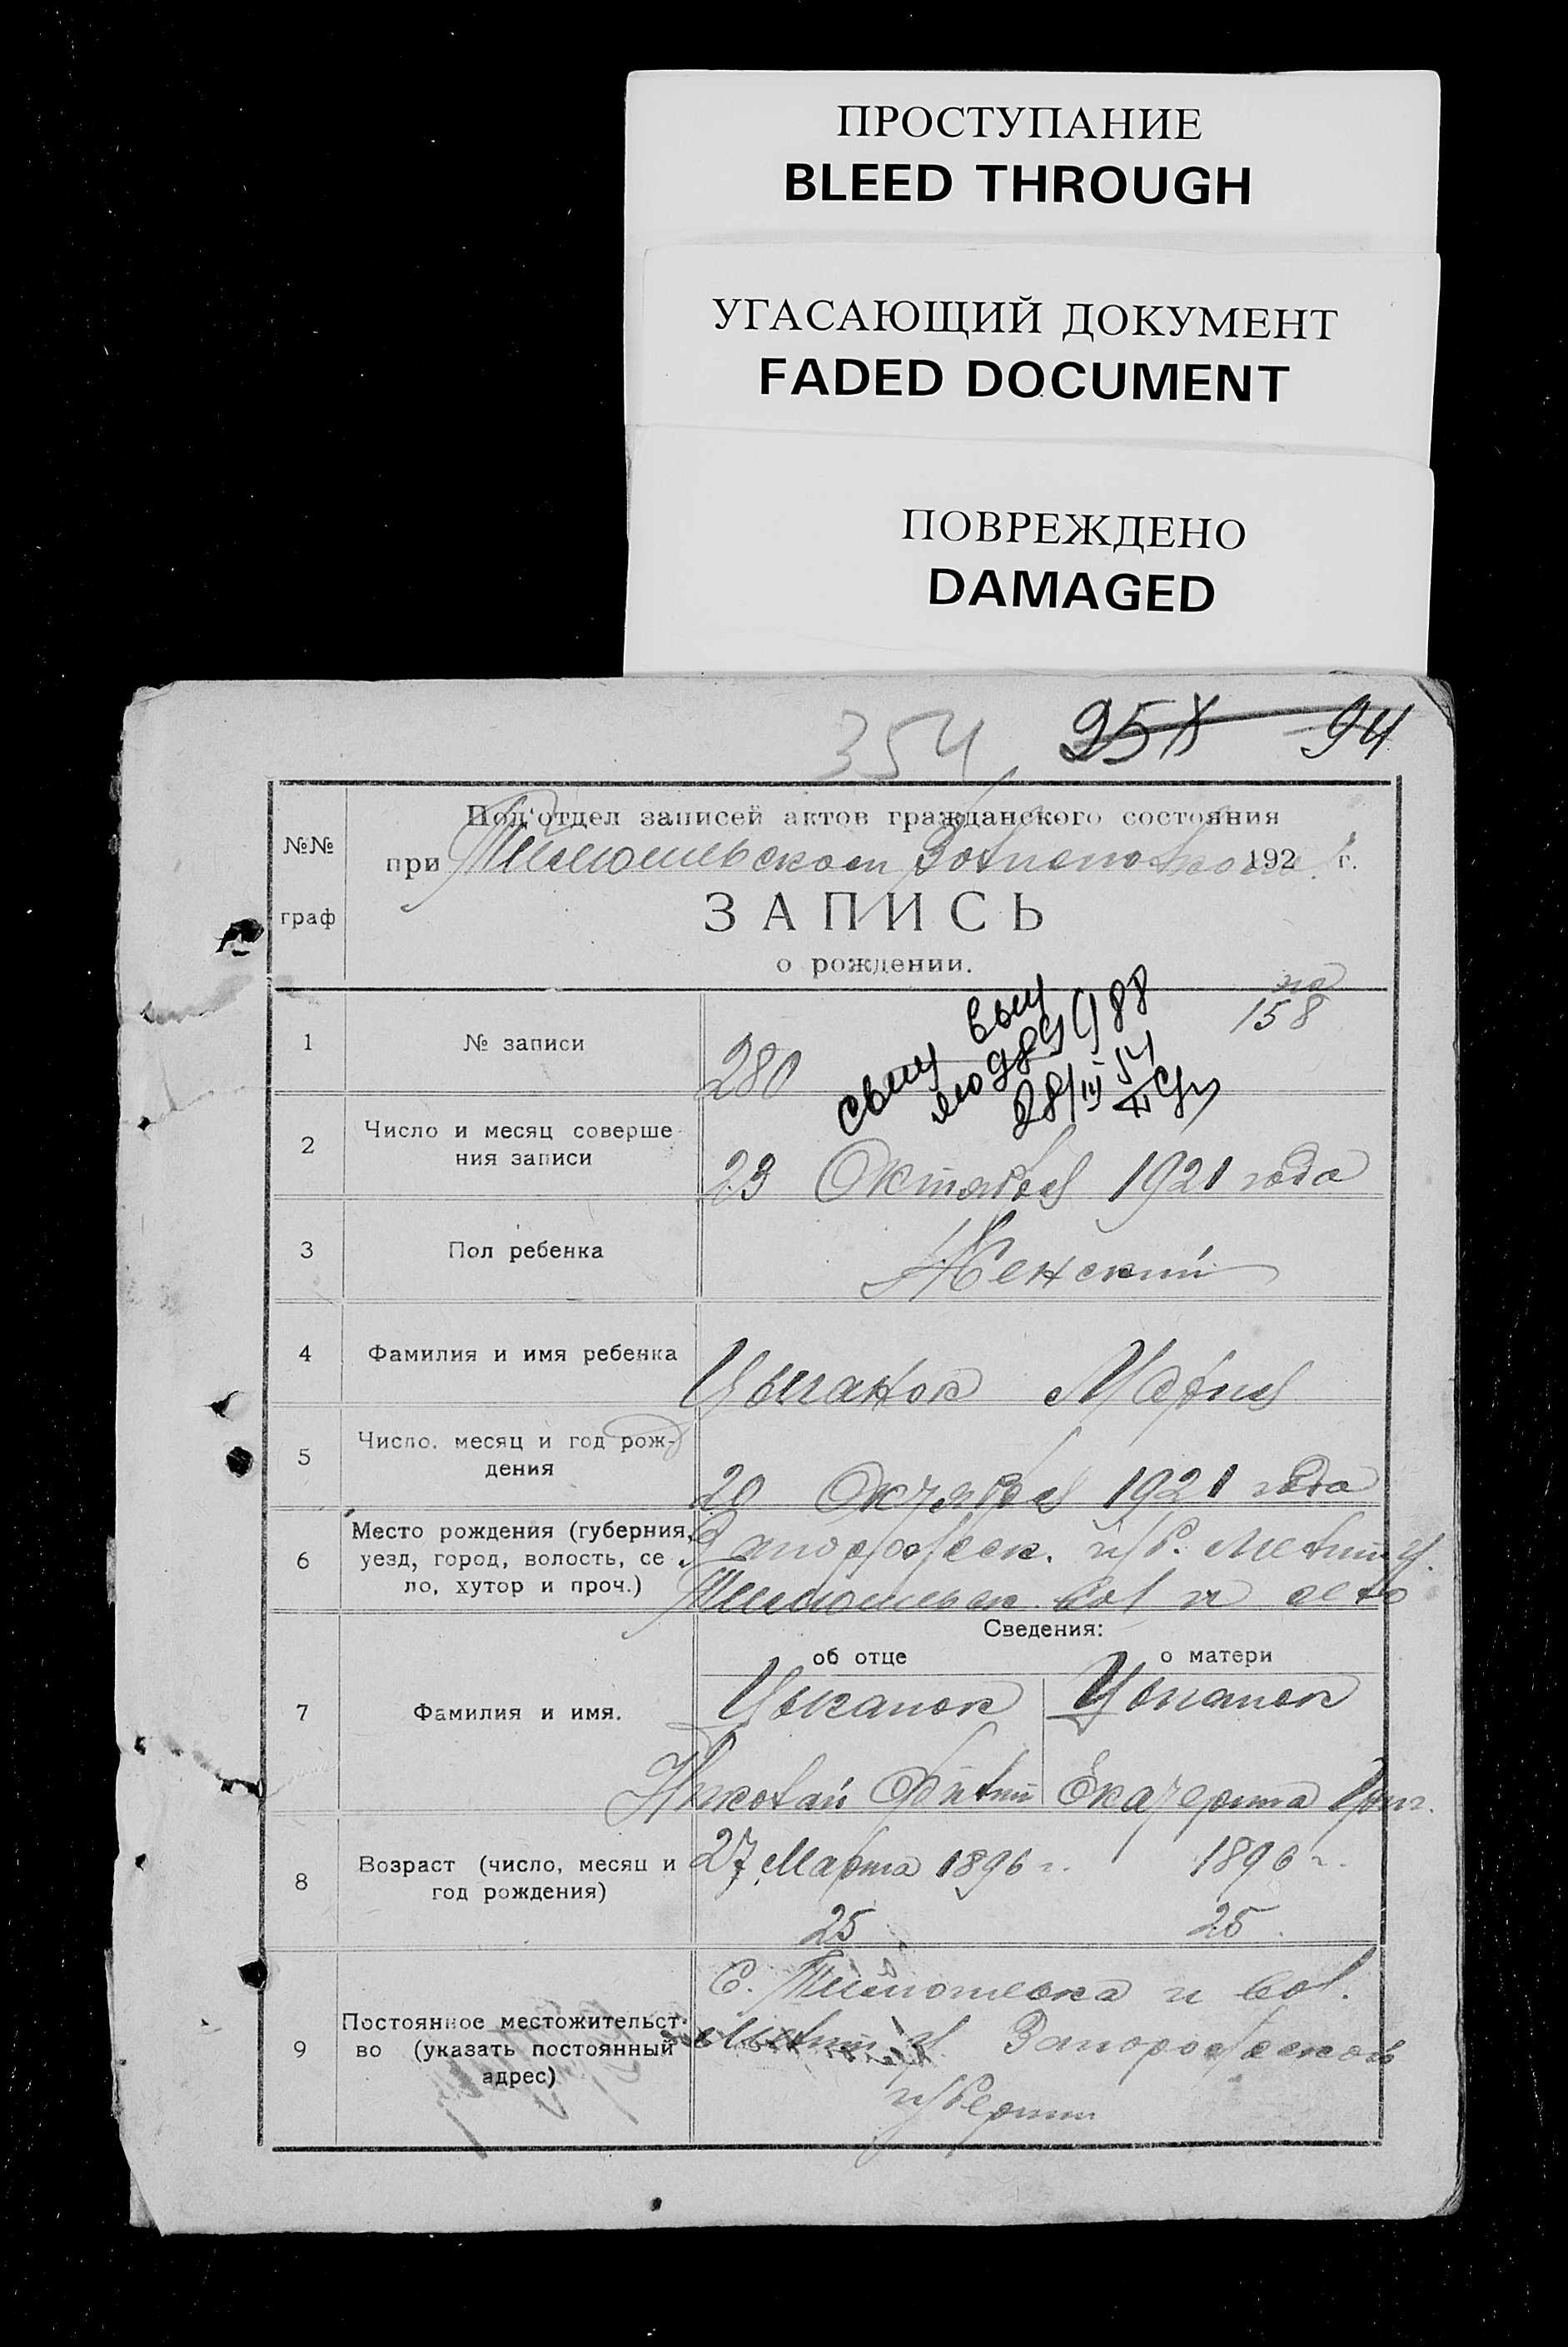 ПРОСТУПАНИЕ
BLEED THROUGH
УГАСАЮЩИЙ ДОКУМЕНТ
FADED DOCUMENT
ПОВРЕЖДЕНО
DAMAGED
354 94
№№ граф
Под'отдел записей актов гражданского состояния
при Тимошевском 192 г.
ЗАПИСЬ
о рождении.
158
1 № записи 280
28/III 54
2 Число и месяц соверше-
ния записи
23 Октября 1921 года
3 Пол ребенка Женский
4 Фамилия и имя ребенка Цыганок Мария
5 Число, месяц и год рож-
дения
20 Октября 1921 года
6 Место рождения (губерния,
уезд, город, волость, се-
ло, хутор и проч.)
Запорожск. губ. Мелит. у.
Тимошевск. вол и село
Сведения:
об отце о матери
7 Фамилия и имя.
Цыганок Цыганок
Николай Екатерина Григ.
8 Возраст (число, месяц и
год рождения)
27 Марта 1896 г. 1896 г.
25 25
9 Постоянное местожительст-
во (указать постоянный
адрес)
С. Тимошевка и вол.
Мелит у. Запорожской
губернии